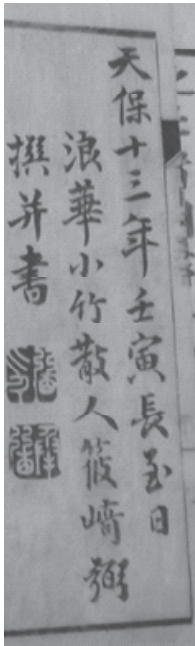 天保十三年壬寅長至日
浪華小竹散人筱崎弼
撰并書